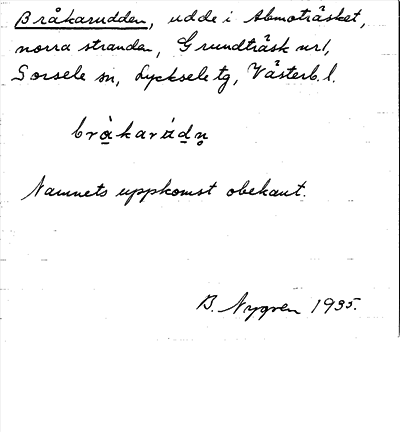 Bråkarudden, udde i Abmoträsket,
norra stranda, Grundträsk nr 1,
Sorsele sn, Lycksele tg, Västerb. l.
Namnets uppkomst obekant.
B. Nygren 1935.